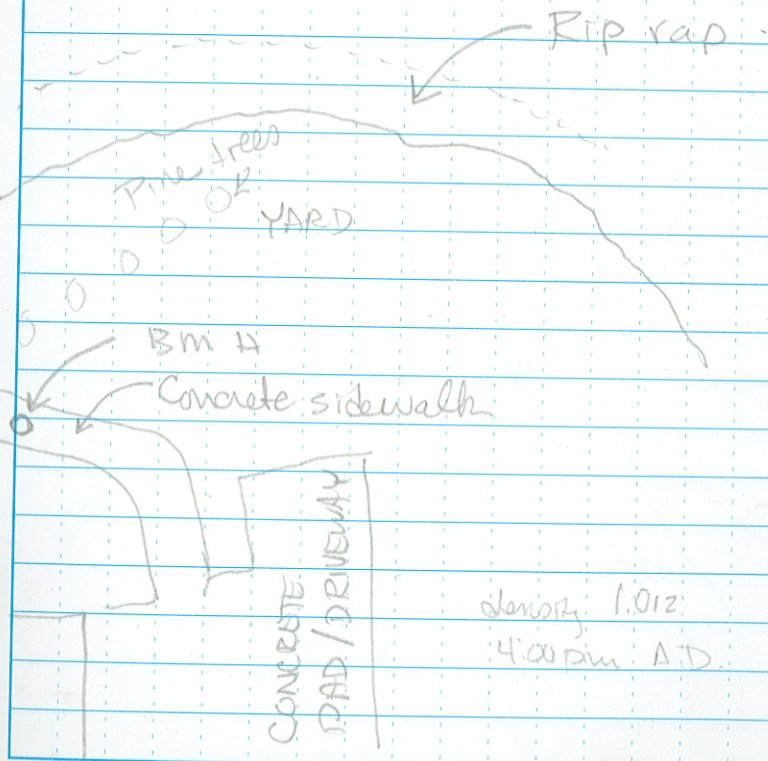 Rip rap
Pine trees
YARD
BM A
Concrete sidewalk
CONCRETE
PAD / DRIVEWAY
density 1.012
4:00pm A.D.